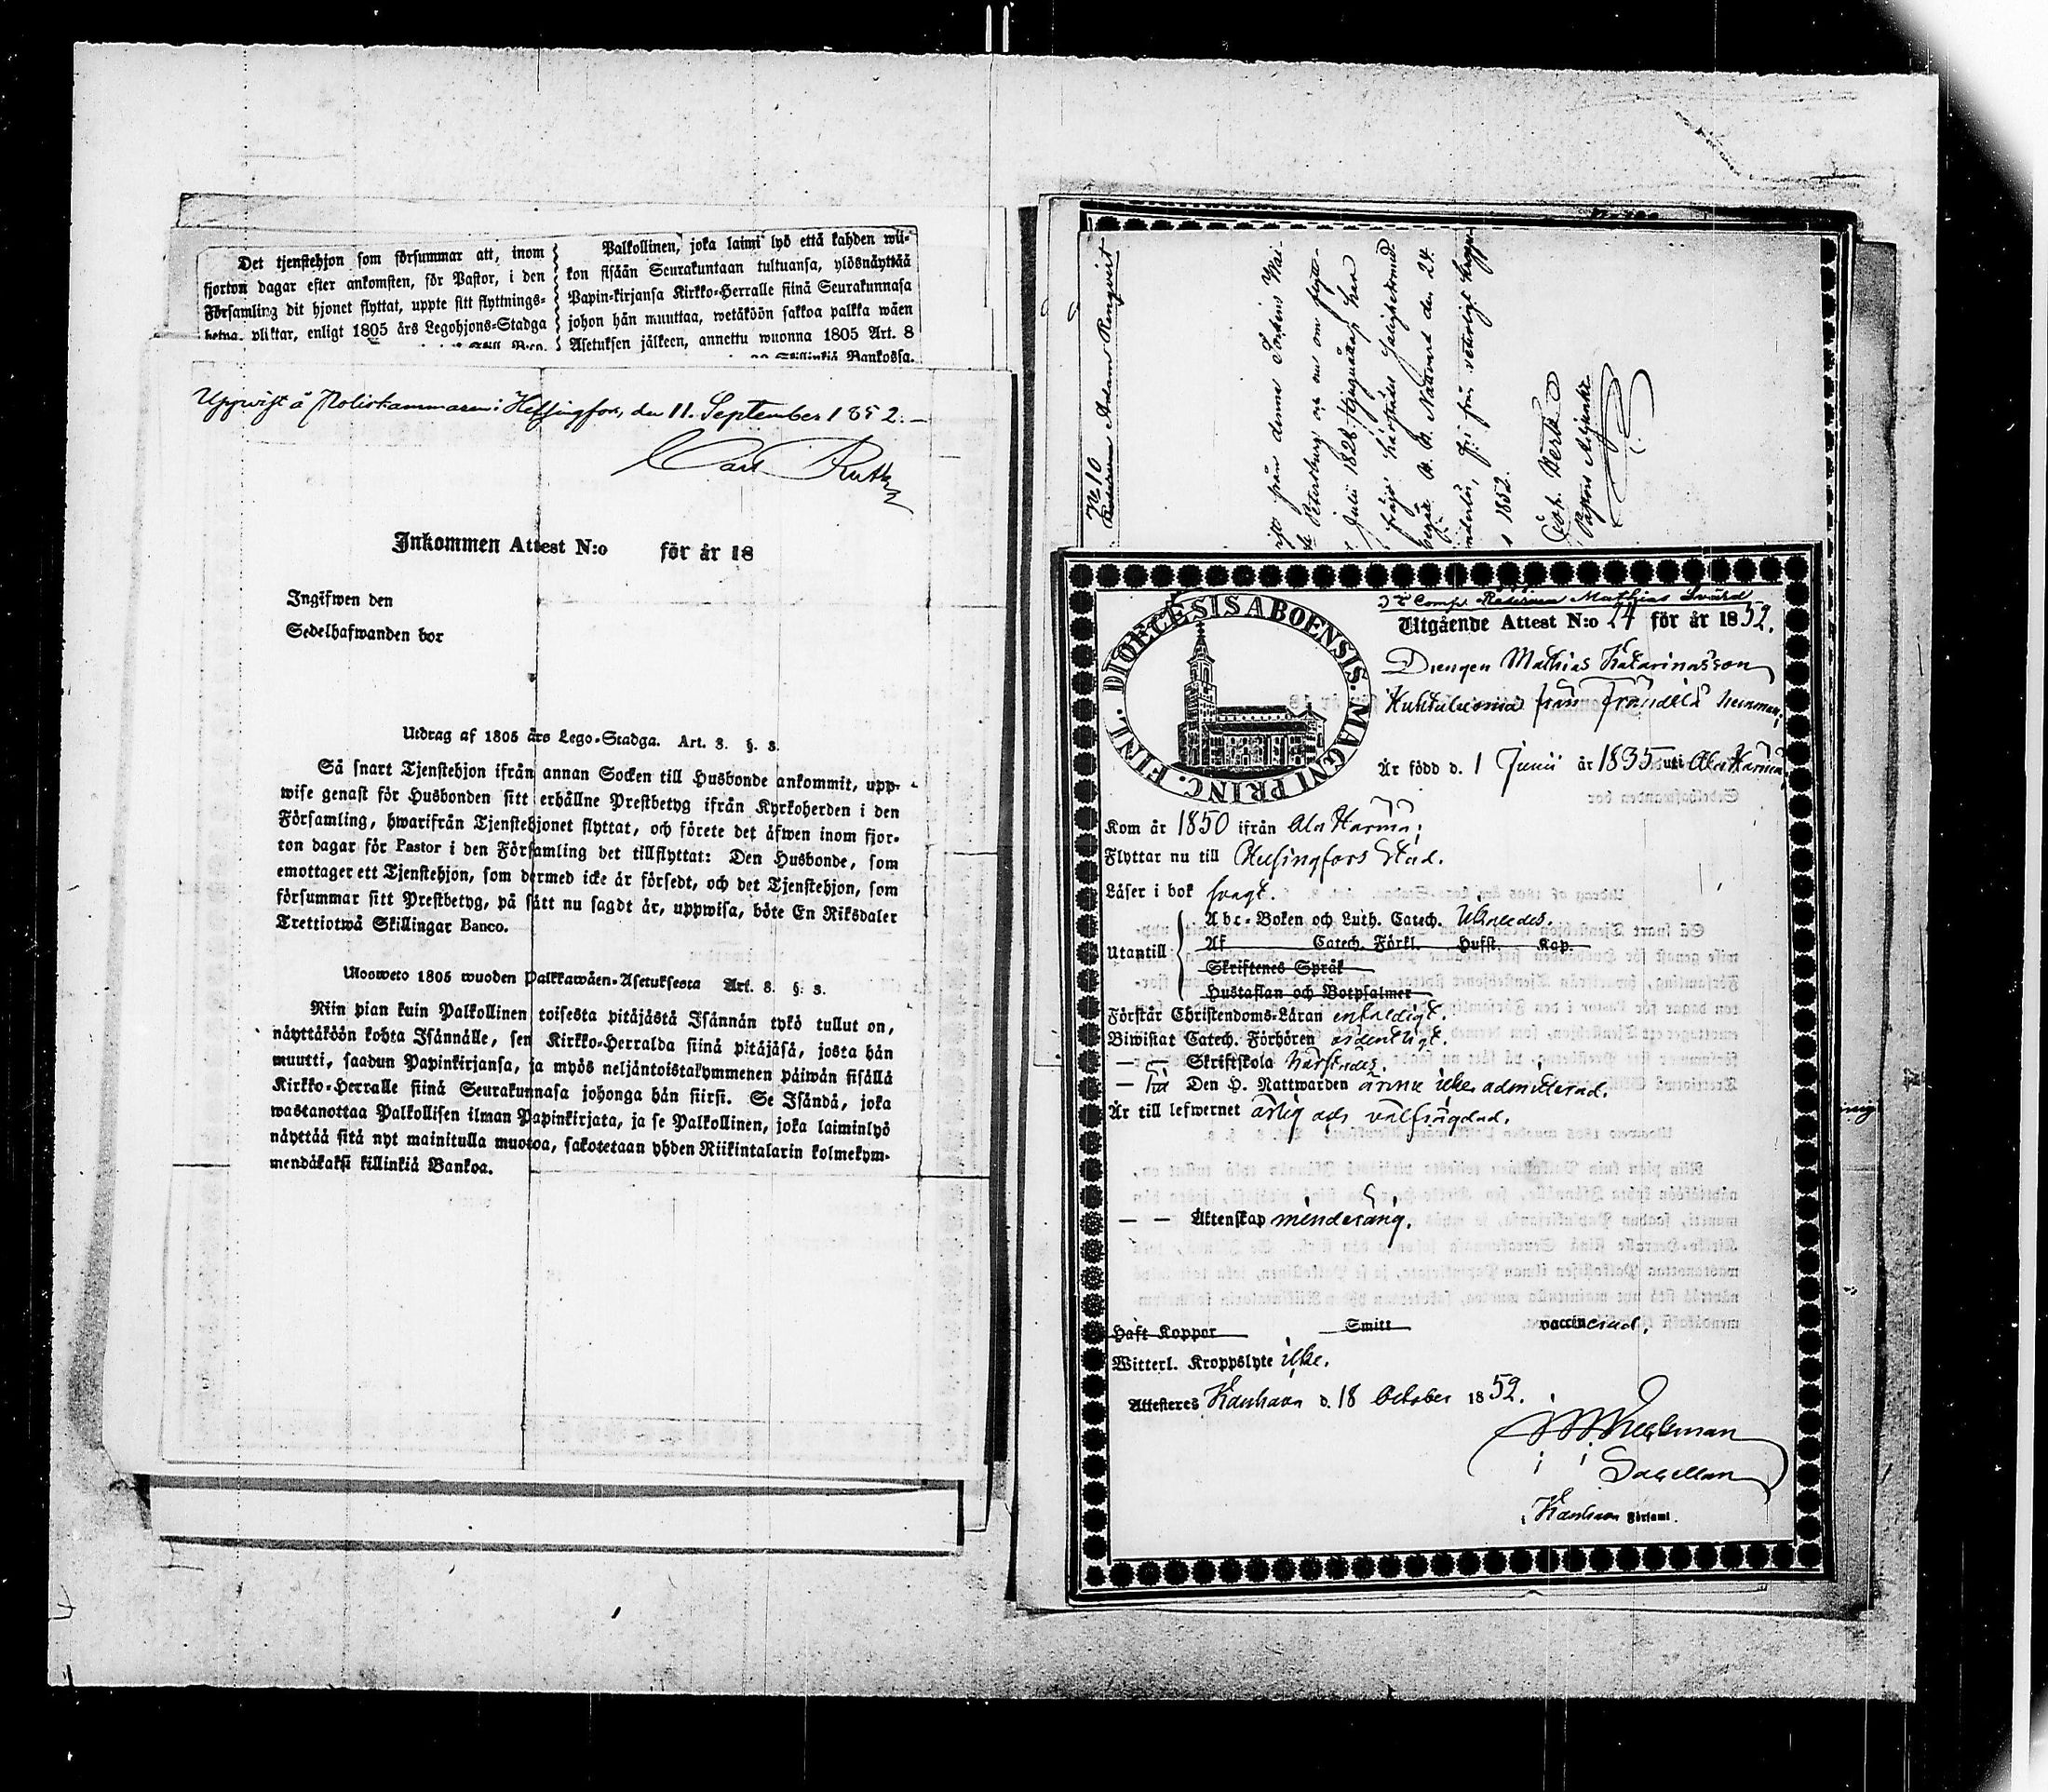 Det tjenstehjon som försummar att, inom
fjorton dagar efter ankomsten, för Pastor, i den
Församling dit hjonet flyttat, uppte sitt flyttnings-
betyg, pliktar, enligt 1805 års Legohjons-Stadga
Palkollinen, joka laimi lyö että kahden wii-
kon sisään Seurakuntaan tultuansa, ylösnäyttää
Papin-kirjansa Kirkko-Herralle siinä Seurakunnasa
johon hän muuttaa, wetäköön sakkoa palkka wäen
Asetuksen jälkeen, annettu wuonna 1805 Art. 8
Skillinkiä Bankossa.
Uppvist å Poliskammaren i Helsingfors, den 11. September 1852.–
Carl Ruth
Inkommen Attest N:o för år 18
Ingifwen den
Sedelhafwanden bor
Utdrag af 1805 års Lego-Stadga. Art. 3. §. 3.
Så snart Tjenstehjon ifrån annan Socken till Husbonde ankommit, upp-
wise genast för Husbonden sitt erhållne Prestbetyg ifrån Kyrkoherden i den
Församling, hwarifrån Tjenstehjonet flyttat, och förete det äfwen inom fjor-
ton dagar för Pastor i den Församling det tillflyttat: Den Husbonde, som
emottager ett Tjenstehjon, som dermed icke är försedt, och det Tjenstehjon, som
försummar sitt Prestbetyg, på sätt nu sagdt är, uppwisa, böte En Riksdaler
Trettiotwå Skillingar Banco.
Ulosweto 1805 wuoden Palkkawäen-Asetuksesta Art. 3. §. 3.
Niin pian kuin Palkollinen toisesta pitäjästä Isännän tykö tullut on,
näyttäköön kohta Isännälle, sen Kirkko-Herralda siinä pitäjäsä, josta hän
muutti, saadun Papinkirjansa, ja myös neljäntoistakymmenen päiwän sisällä
Kirkko-Herralle siinä Seurakunnasa johonga hän siirsi. Se Isändä, joka
wastanottaa Palkollisen ilman Papinkirjata, ja se Palkollinen, joka laiminlyö
näyttää sitä nyt mainitulla muotoa, sakotetaan yhden Riikintalarin kolmekym-
mendäkaksi killinkiä Bankoa.
N:o 10
Adam Renqvist
från denna Sockens
Petersburg och
Julii 1828,
H. H. Nattvard den 24.
1852.
Pastors Adjunkt.
DIOECESIS ABOENSIS. MAGNI PRINC. FINL.
3:e Comp. Mathias Svärd
Utgående Attest N:o 24 för år 1852.
Drengen Mathias Katarinasson
från hemman;
Är född d. 1 Junii år 1835 uti Ala Härmä,
Kom år 1850 ifrån Ala Härmä;
Flyttar nu till Helsingfors Stad.
Läser i bok svagt.
Utantill
Abc-Boken och Luth. Catech.
Af Catech. Förkl. Hufst. Kap.
Skriftenes Språk
Hustaflan och Botpsalmer
Förstår Christendoms-Läran enfaldigt.
Biwistat Catech. Förhören ordentligt.
— — Skriftskola
— till Den H. Nattwarden ännu icke admitterad.
Är till lefwernet ärlig och välfrägdad.
— — Äktenskap minderårig.
Haft Koppor Smitt vaccinerad.
Witterl. Kroppslyte icke.
Attesteres Kauhava d. 18 October 1852.
Sacellan
i Kauhava Församl.